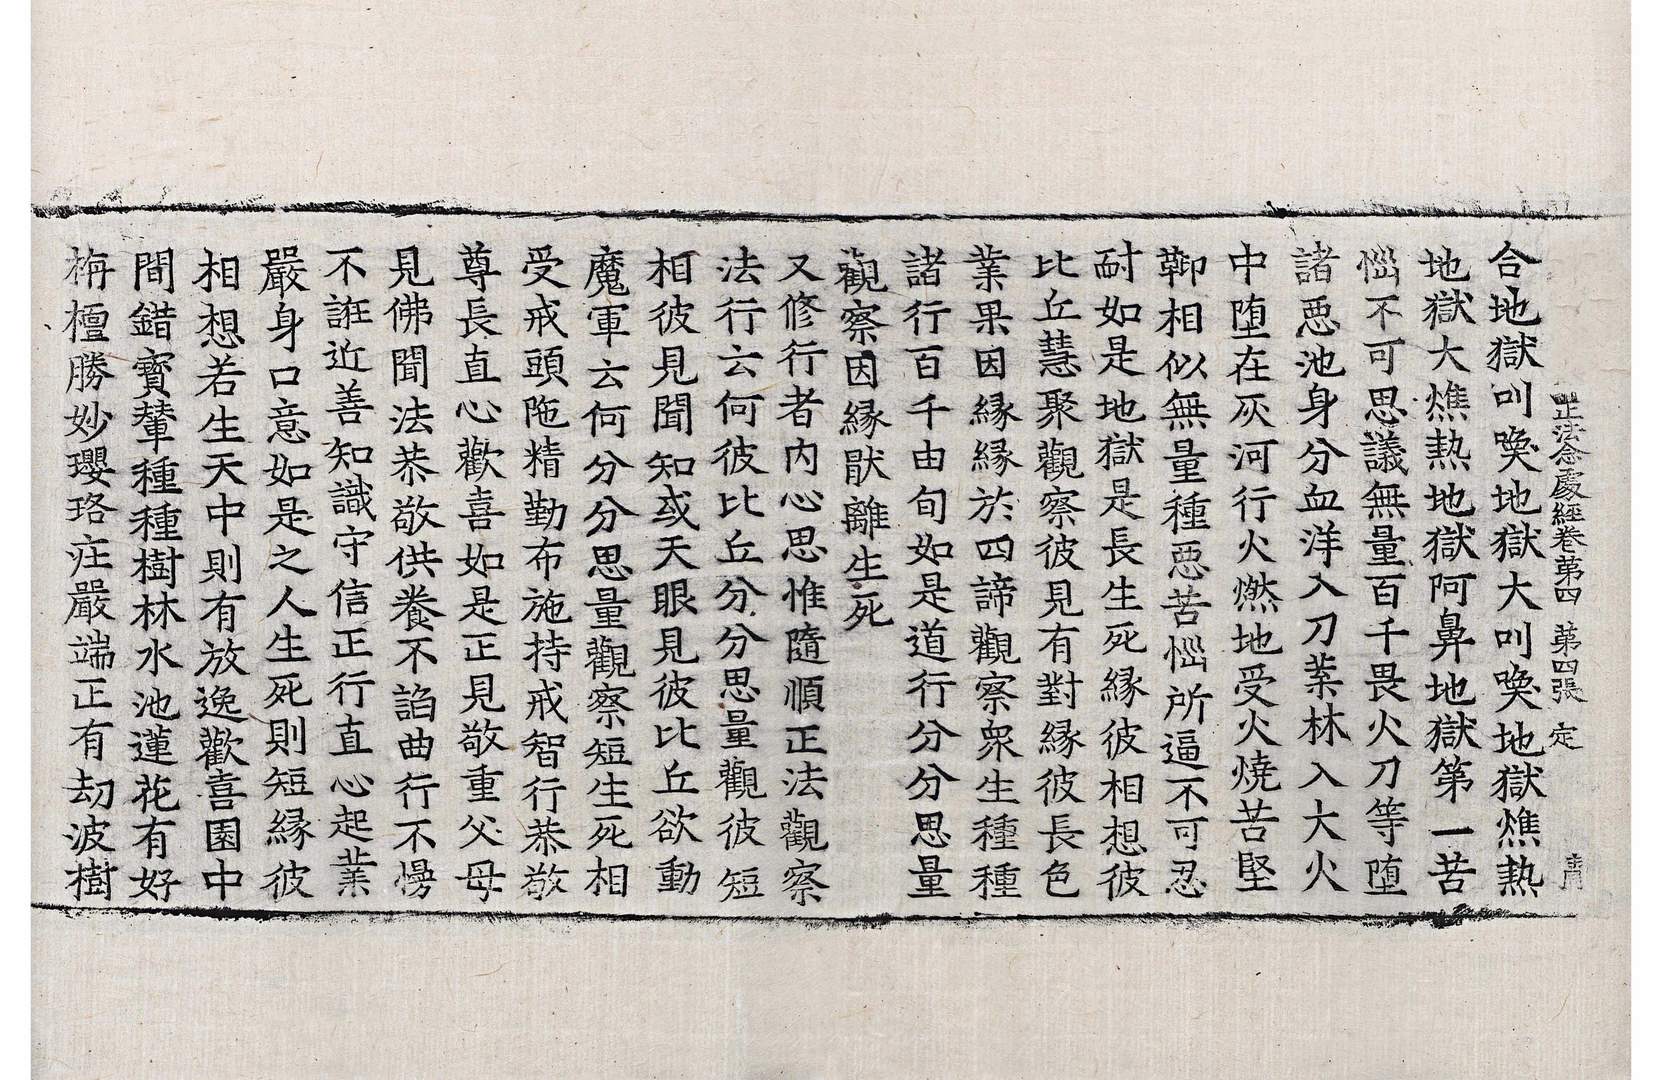 正法念處經卷第四 第四張 定
合地獄叫喚地獄大叫喚地獄燋熱
地獄大燋熱地獄阿鼻地獄第一苦
惱不可思議無量百千畏火刀等堕
諸惡池身分血洋入刀葉林入大火
中堕在灰河行火燃地受火燒苦堅
鞕相似無量種惡苦惱所逼不可忍
耐如是地獄是長生死縁彼相想彼
比丘慧聚觀察彼見有對縁彼長色
業果因縁縁於四諦觀察衆生種種
諸行百千由旬如是道行分分思量
觀察因縁猒離生死
又修行者内心思惟隨順正法觀察
法行云何彼比丘分分思量觀彼短
相彼見聞知或天眼見彼比丘欲動
魔軍云何分分思量觀察短生死相
受戒頭陁精勤布施持戒智行恭敬
尊長直心歡喜如是正見敬重父母
見佛聞法恭敬供養不諂曲行不慢
不誑近善知識守信正行直心起業
嚴身口意如是之人生死則短縁彼
相想若生天中則有放逸歡喜園中
間錯寶輦種種樹林水池蓮花有好
栴檀勝妙瓔珞庄嚴端正有劫波樹